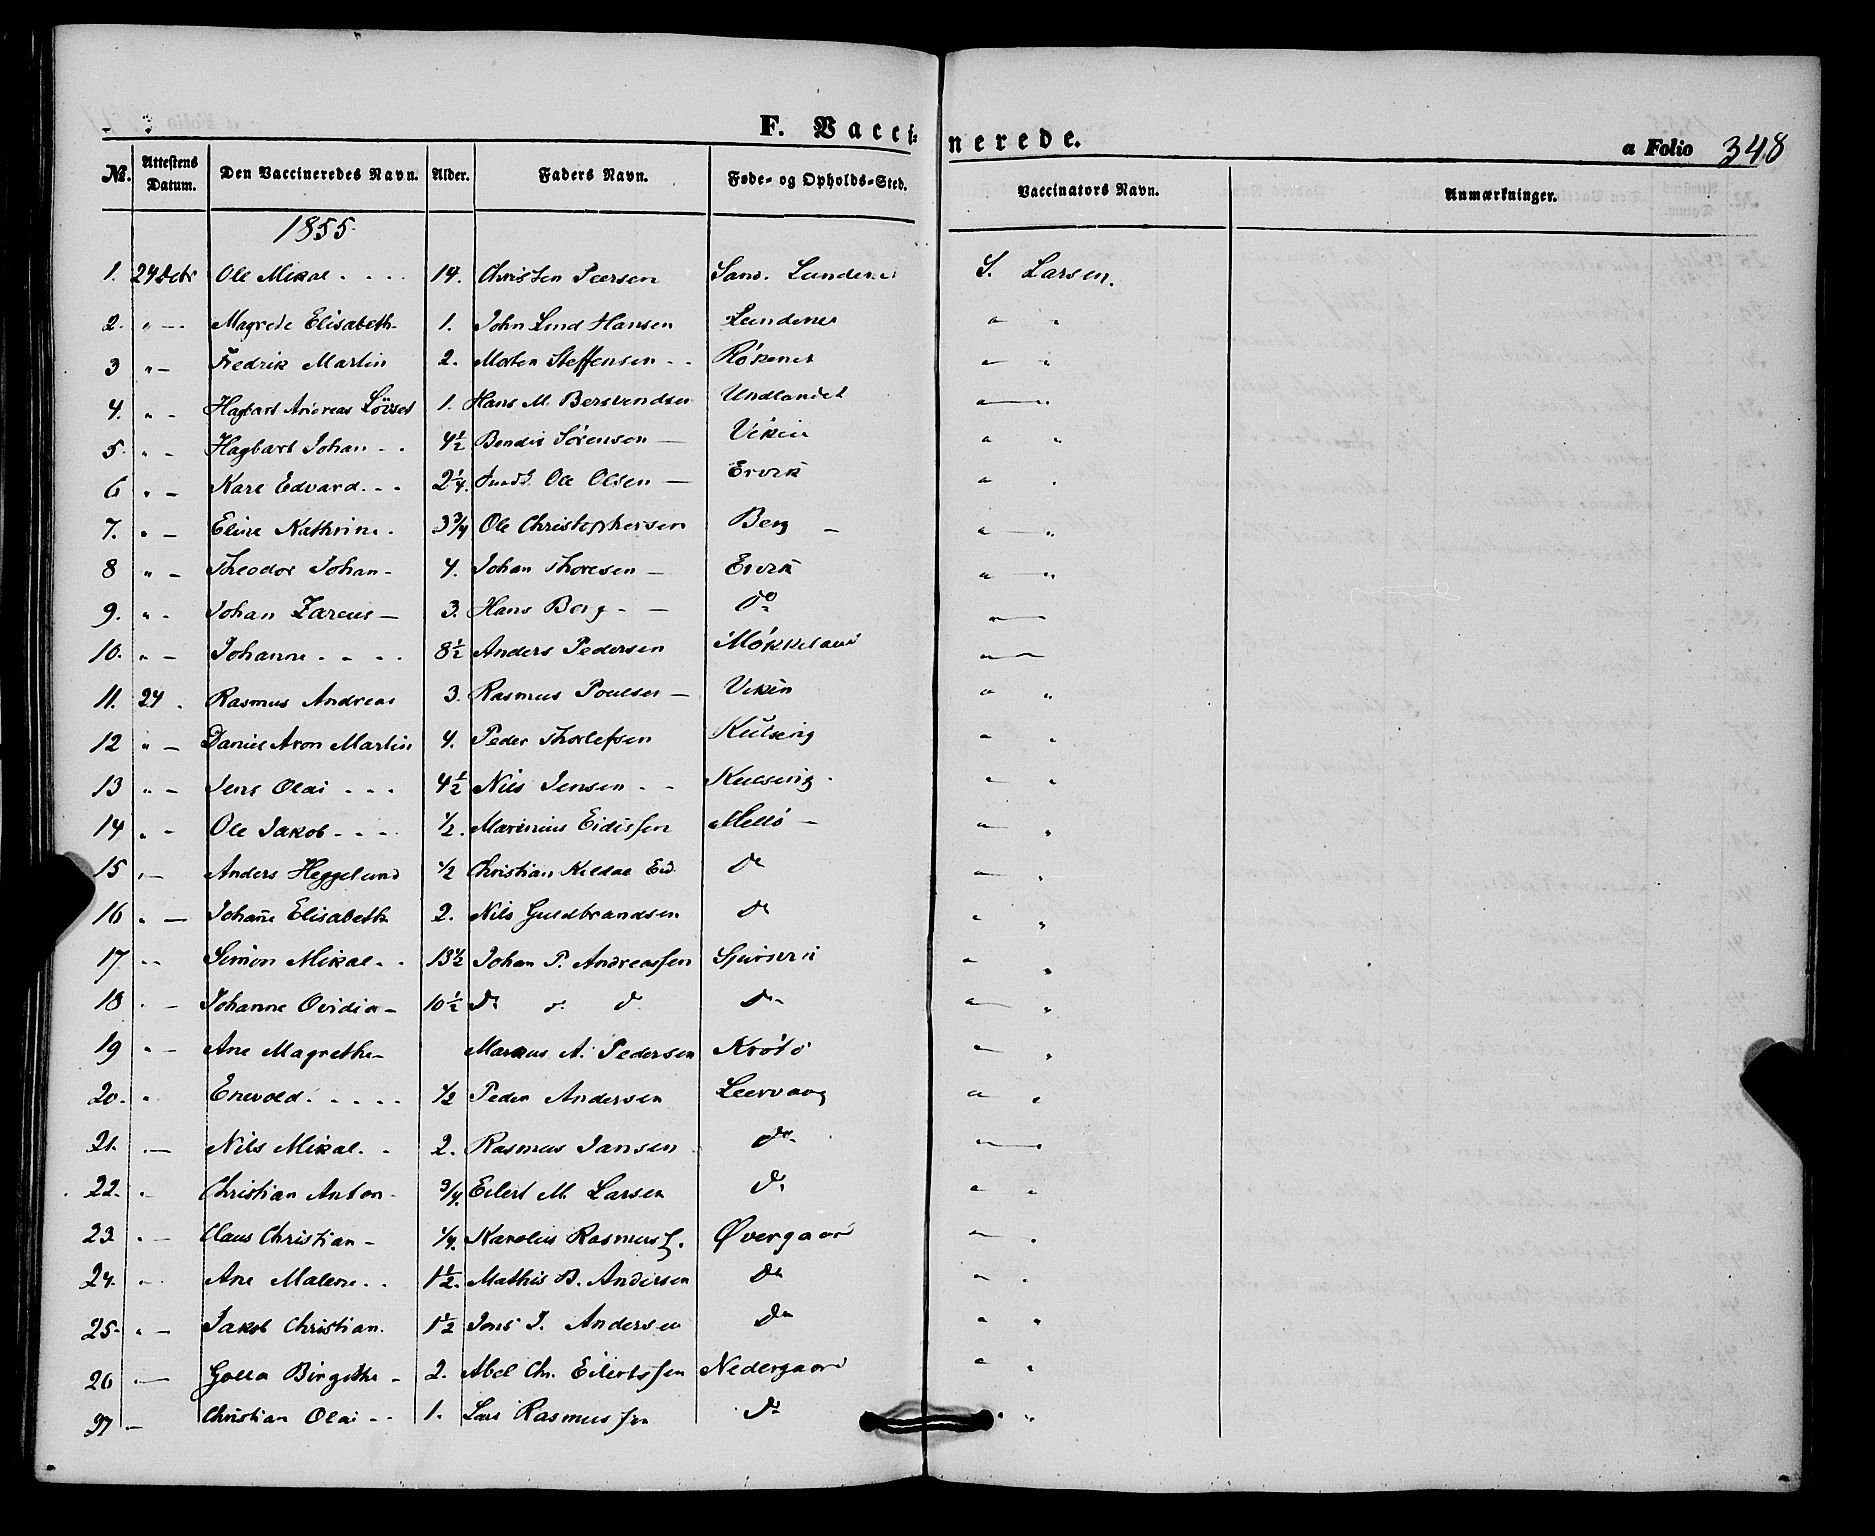 F. Vacci- nerede.
a Folio 348
No. Attestens Datum. Den Vaccineredes Navn. Alder. Faders Navn. Føde- og Opholds-Sted. Vaccinators Navn. Anmærkninger.
1855.
1. 24 Octr Ole Mikal 14. Christen Peersen Sand. S. Larsen.
2. " — Magrede Elisabeth 1. John Lind Hansen Lundenes " "
3 " — Fredrik Martin 2. Morten Steffensen Røkenes " "
4. " - Hagbart Andreas 1. Hans M. Bersvendsen Undlandet " "
5. " - Hagbart Johan 4½ Bendix Sørensen — Vikin " "
6 " — Karl Edvard 2¼. Ole Olsen — Ervik " "
7. " — Eline Kathrine 3¾ Ole Christophersen Berg — " "
8 " — Theodor Johan - 4. Johan Thoresen — Ervik " "
9. " - Johan Zareus — 3. Hans Berg - — do "
10. " — Johanne 8½ Anders Pedersen Møkkeland "
11. 24 . Rasmus Andreas 3. Rasmus Poulsen — Vikin " "
12 " — Daniel Aron Martin 4. Peder Thorlefsen Kulseng " "
13 " — Jens Olai 4½ Nils Jensen Kulseng " "
14 " — Ole Jakob ½. Marinius Eidissen Melø — " "
15 " — Anders Heggelund ½ Christian Kildal do " "
16 " — Johañe Elisabeth 2. Nils Guldbrandsen do " "
17. " - Simon Mikal 13½ Johan P. Andreassen " "
18 " — Johanne Ovidia — 10½ do do do do " "
19 " — Ane Magrethe Markus A. Pedersen Krøtø " "
20. " Enevold ½ Peder Andersen Leervaag " "
21. " — Nils Mikal 2. Rasmus Jansen do " "
22. " Christian Anton ¾. Eilert M. Larsen do " "
23 " — Claus Christian - ¼. Karelius Rasmuss. Øvergaard " "
24. " Ane Malene 1½. Mathis B. Andersen do " "
25. " — Jakob Christian. 1½ Jens J. Andersen do " "
26 — Golla Birgithe - 2. Abel Chr. Eilertssen Nedergaard " "
27 — Christian Olai 1. Lars Rasmussen do " "